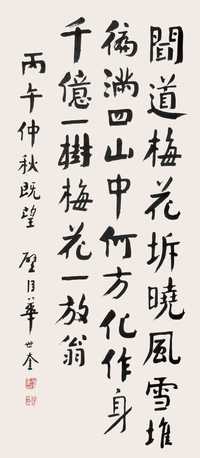 聞道梅花坼曉風雪堆
徧滿四山中何方化作身
千億一樹梅花一放翁
丙午仲秋既望 璧臣華世奎